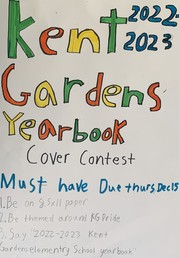 Kent 2022-
2023
Gardens
Yearbook
Cover Contest
Must have Due thurs Dec15
1. Be on 8.5x11 paper
2. Be themed around KG Pride
3. Say "2022-2023 Kent
Gardens elementry School yearbook"